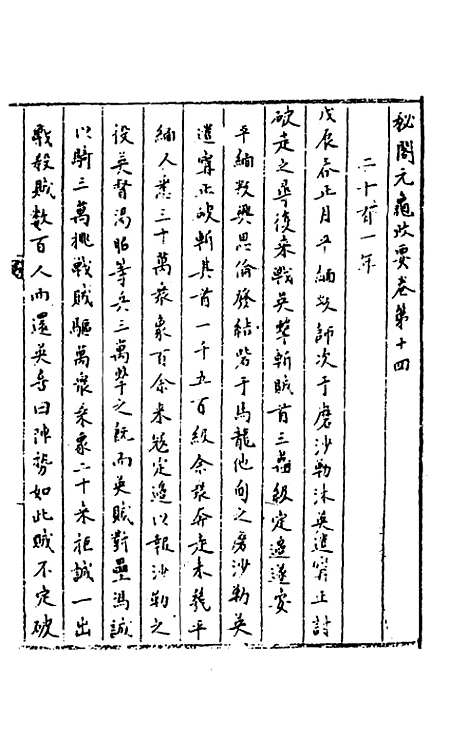 秘閣元龜政要卷第十四
二十有一年
戊辰春正月平緬叛師次于磨沙勒沐英進甯正討
破走之尋復來戰英等斬賊首三千級定邉遂安
平緬叛與思倫發結砦于馬龍他甸之磨沙勒英
遣甯正破斬其首一千五百級余張奔走未幾平
緬人悉三十萬衆象百余來寇定邉以報沙勒之
役英督馮昭等兵三萬擊之既而英賊對壘馮誠
以騎三萬挑戰賊驅萬衆乘象二十來拒誠一出
戰殺賊数百人而還英等曰陣勢如此賊不足破